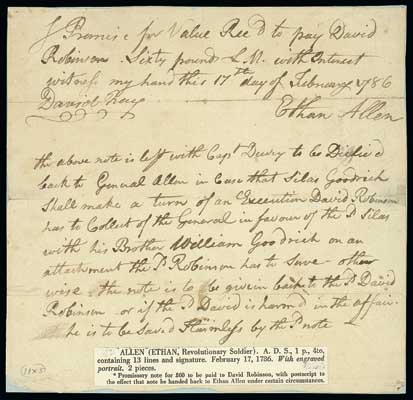 I Promise for Value Rec'd to pay David
Robinson Sixty pounds L.M. with Interest
witness my hand this 17th day of February 1786
Ethan Allen
the above note is left with Capt Dewey to be
back to General Allen in Case that Silas Goodrich
Shall make a turn of an Execution David Robinson
has to Collect of the General in favour of the sd Silas
with his Brother William Goodrich on an
attachment the sd Robinson has to Save - other
wise the note is to be given back to the sd David
Robinson or if the sd David is harm'd in the affair
he is to be Saved Harmless by the sd note
ALLEN (ETHAN, Revolutionary Soldier). A. D. S., 1 p., 4to,
containing 13 lines and signature. February 17, 1786. With engraved
portrait. 2 pieces.
* Promissory note for £60 to be paid to David Robinson, with postscript to
the effect that note be handed back to Ethan Allen under certain circumstances.